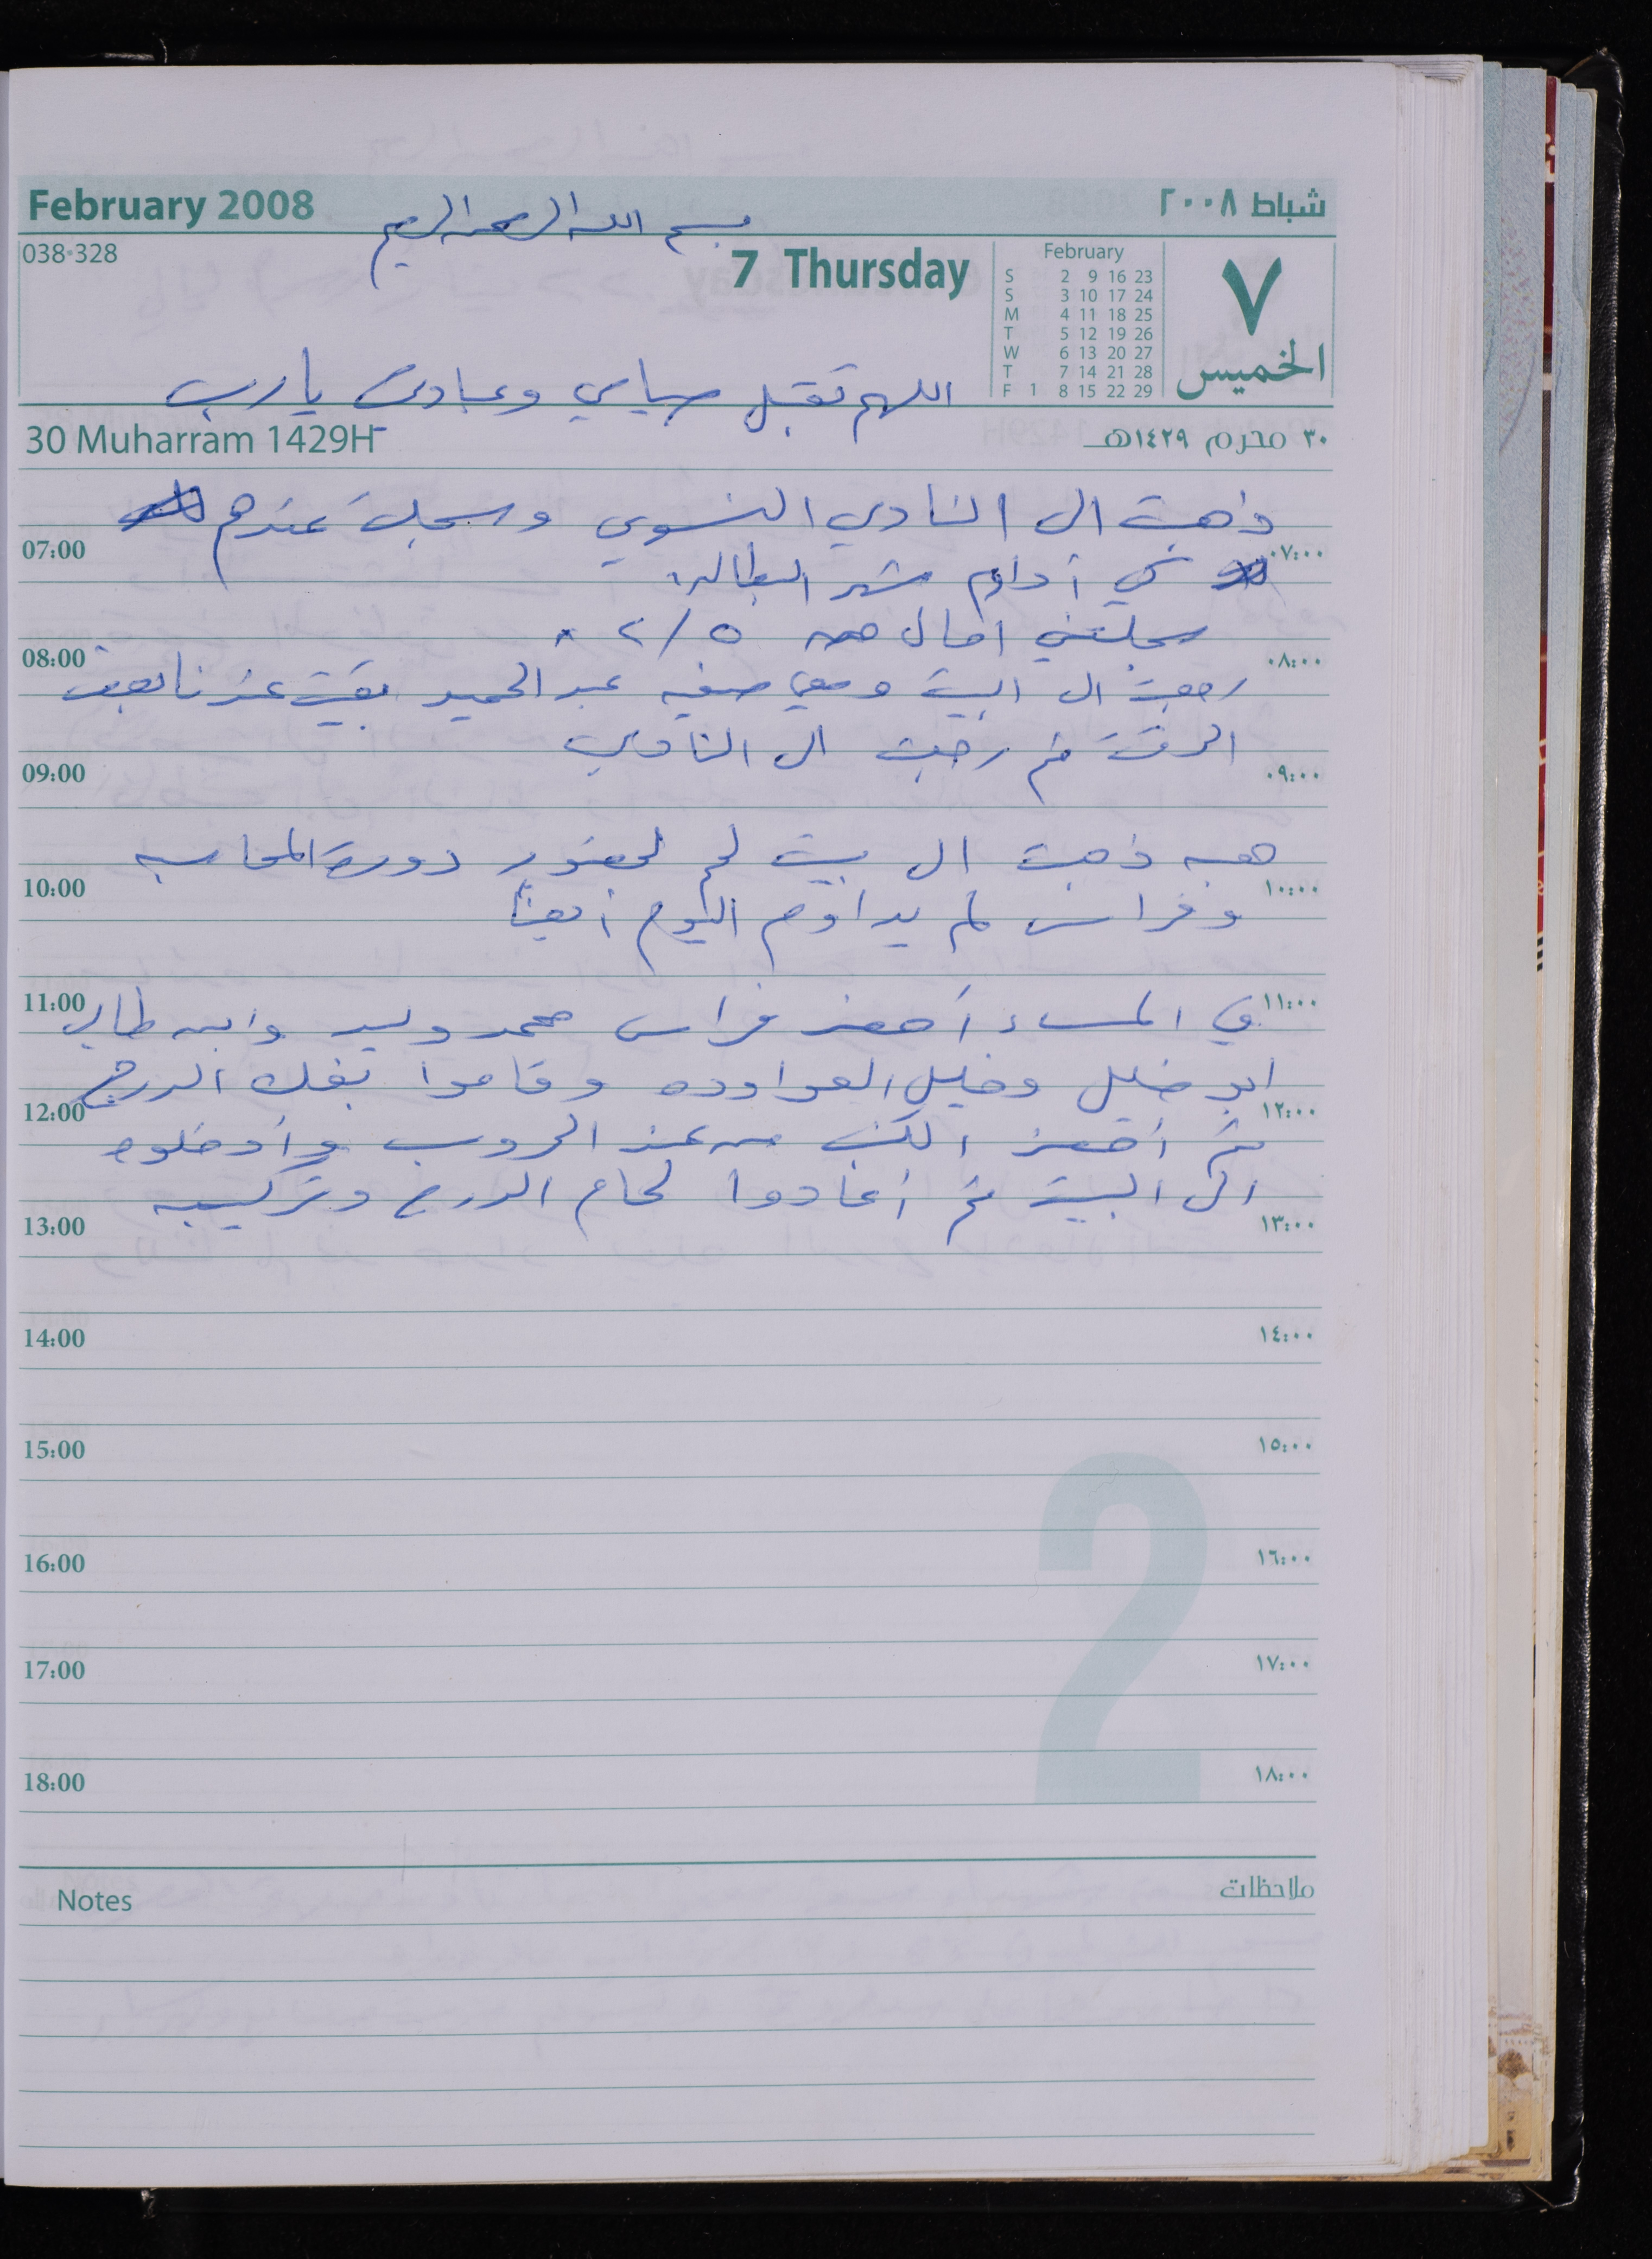 February 2008
شباط ٢٠٠٨
بسم الله الرحمن الرحيم
038-328
7 Thursday
February
S 2 9 16 23
S 3 10 17 24
M 4 11 18 25
T 5 12 19 26
W 6 13 20 27
T 7 14 21 28
F 1 8 15 22 29
٧
الخميس
اللهم تقبل صيامي وعبادتي يا رب
30 Muharram 1429H
٣٠ محرم ١٤٢٩هـ
ذهبت الى النادي النسوي وسجلت عندهم
07:00 ٠٧:٠٠
كي أداوم شهر البطالة
سجلتني امال من ٥/٢
08:00 ٠٨:٠٠
رجعت الى البيت ومعي صفيه عبد الحميد بقيت عندنا بعض
الوقت ثم رجعت الى النادي
09:00 ٠٩:٠٠
هبه ذهبت الى بيت لحم لحضور دورة المحاسبه
10:00 ١٠:٠٠
وفراس لم يداوم اليوم أيضاً
11:00 ١١:٠٠
في المساء أحضر فراس محمد وليد وابن طالب
ابو خليل وخليل العواوده وقاموا بفك الدرج
12:00 ١٢:٠٠
ثم أحضر الكنب من عند الدروب وأدخلوه
الى البيت ثم أعادوا لحام الدرج وتركيبه
13:00 ١٣:٠٠
14:00 ١٤:٠٠
15:00 ١٥:٠٠
16:00 ١٦:٠٠
17:00 ١٧:٠٠
18:00 ١٨:٠٠
2
Notes
ملاحظات